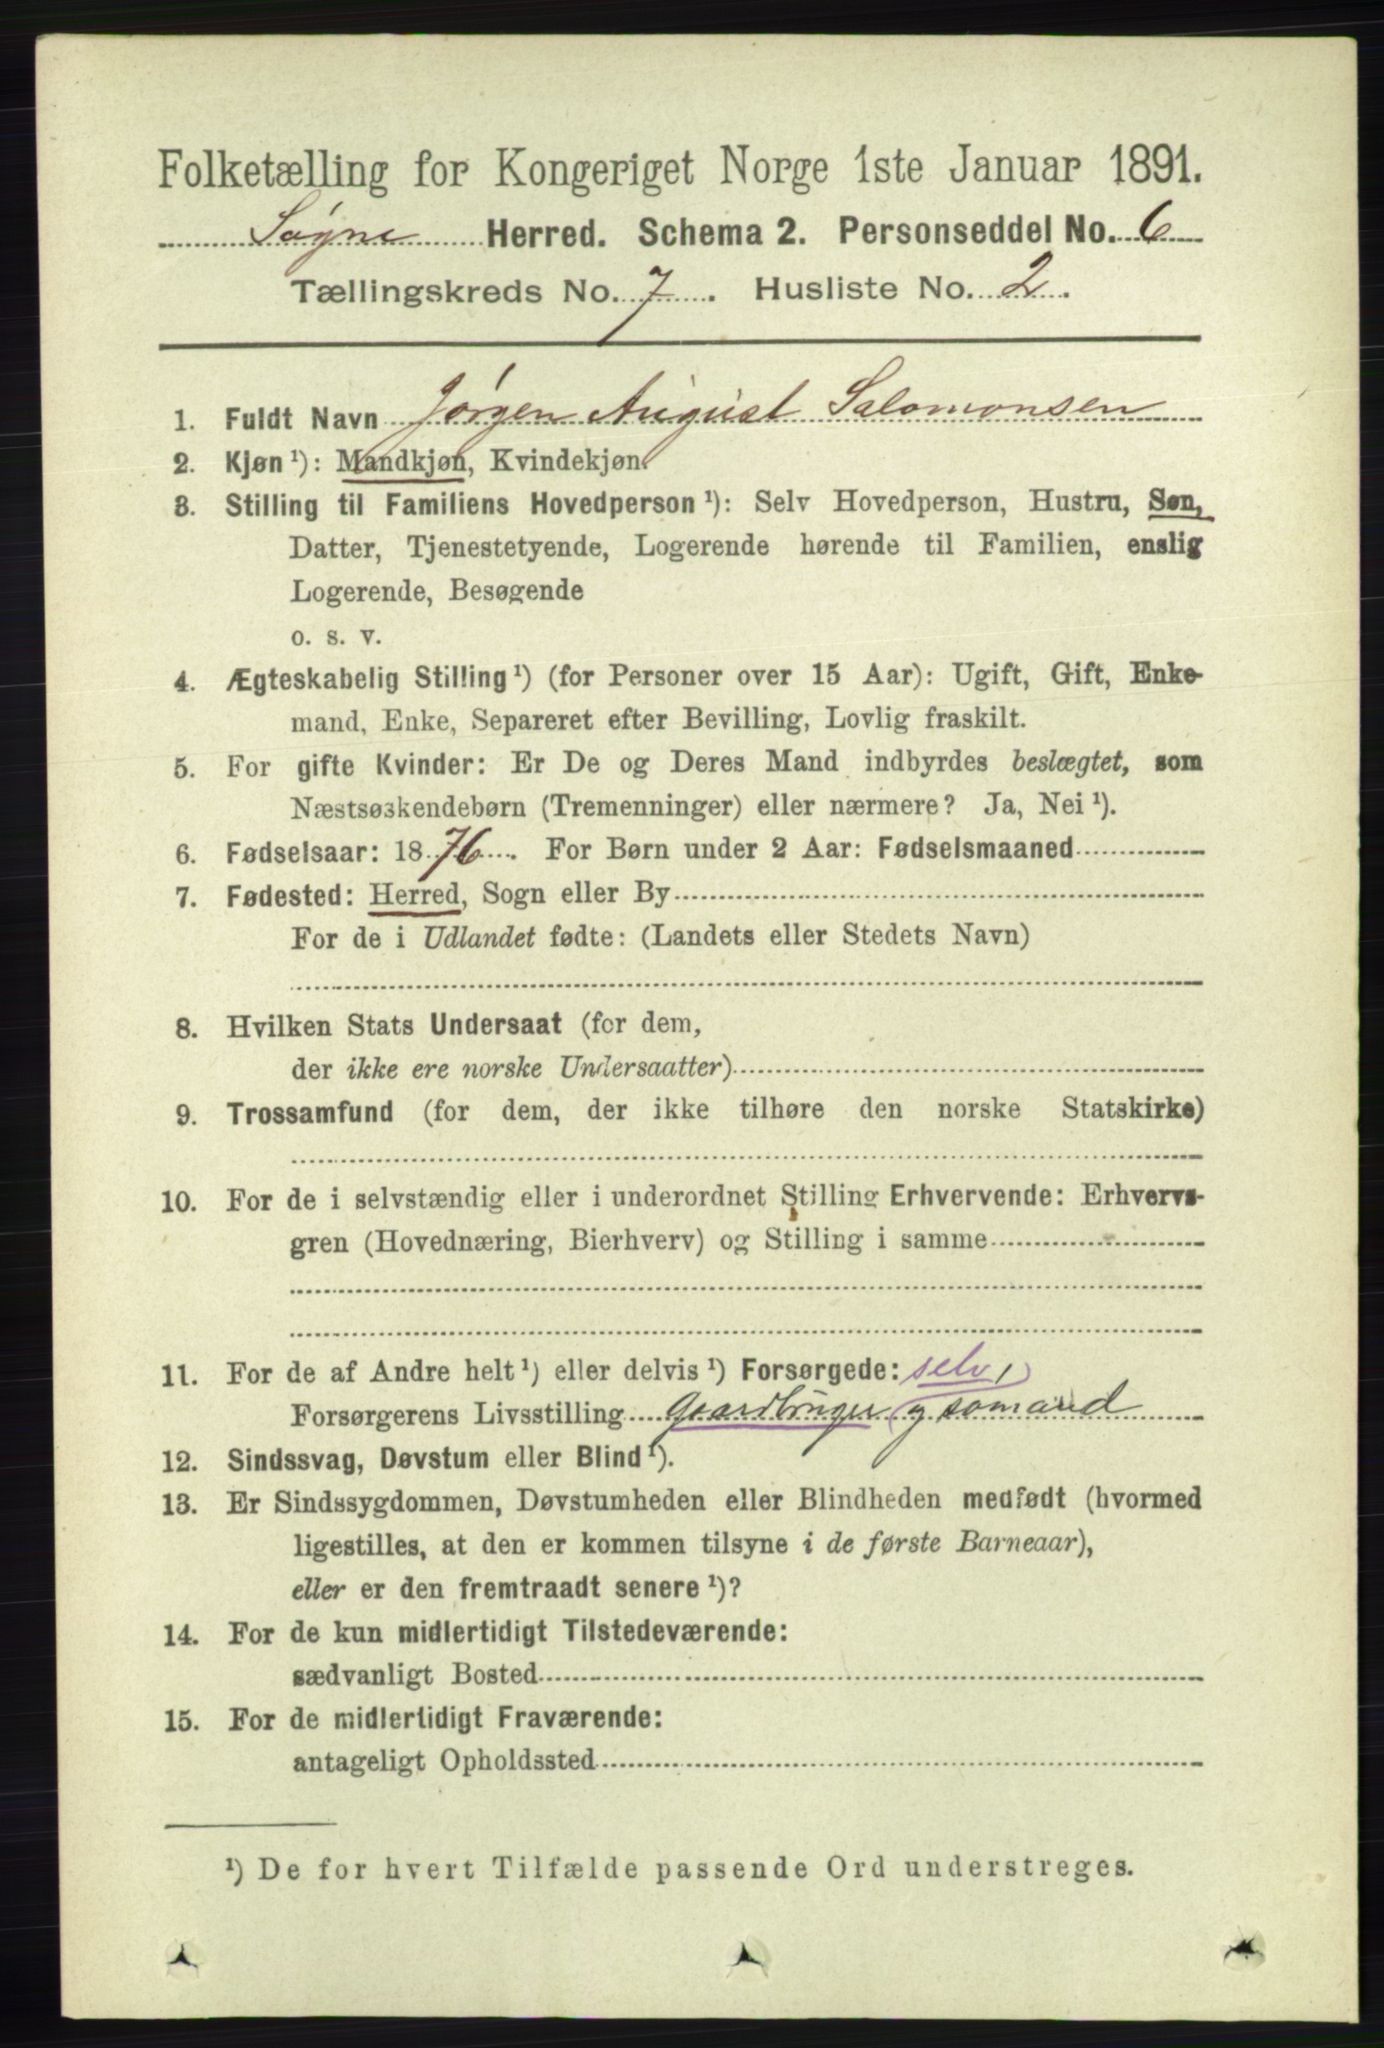 Folketælling for Kongeriget Norge 1ste Januar 1891.
Søgne Herred. Schema 2. Personseddel No. 6
Tællingskreds No. 7. Husliste No. 2.
1. Fuldt Navn Jørgen August Salomonsen
2. Kjøn ¹): Mandkjøn, Kvindekjøn.
3. Stilling til Familiens Hovedperson ¹): Selv Hovedperson, Hustru, Søn,
Datter, Tjenestetyende, Logerende hørende til Familien, enslig
Logerende, Besøgende
o. s. v.
4. Ægteskabelig Stilling ¹) (for Personer over 15 Aar): Ugift, Gift, Enke-
mand, Enke, Separeret efter Bevilling, Lovlig fraskilt.
5. For gifte Kvinder: Er De og Deres Mand indbyrdes beslægtet, som
Næstsøskendebørn (Tremenninger) eller nærmere? Ja, Nei ¹).
6. Fødselsaar: 1876. For Børn under 2 Aar: Fødselsmaaned
7. Fødested: Herred, Sogn eller By
For de i Udlandet fødte: (Landets eller Stedets Navn)
8. Hvilken Stats Undersaat (for dem,
der ikke ere norske Undersaatter)
9. Trossamfund (for dem, der ikke tilhøre den norske Statskirke)
10. For de i selvstændig eller i underordnet Stilling Erhvervende: Erhvervs-
gren (Hovednæring, Bierhverv) og Stilling i samme
11. For de af Andre helt ¹) eller delvis ¹) Forsørgede: selv,
Forsørgerens Livsstilling Gaardbruger og sømand
12. Sindssvag, Døvstum eller Blind ¹).
13. Er Sindssygdommen, Døvstumheden eller Blindheden medfødt (hvormed
ligestilles, at den er kommen tilsyne i de første Barneaar),
eller er den fremtraadt senere ¹)?
14. For de kun midlertidigt Tilstedeværende:
sædvanligt Bosted
15. For de midlertidigt Fraværende:
antageligt Opholdssted
¹) De for hvert Tilfælde passende Ord understreges.